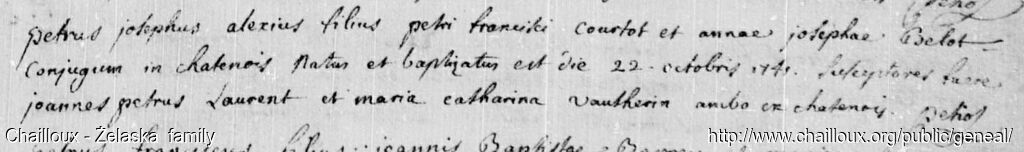 petrus josephus alexius filius petri francisci courtot et annae josephae Belot
conjugum in chatenois natus et baptizatus est die 22 octobris 1741. Susceptores fuere
joannes petrus Laurent et maria catharina Vautherin ambo ex chatenois.
Chailloux - Żelaska family
http://www.chailloux.org/public/geneal/
petrus franciscus filius joannis Baptistae